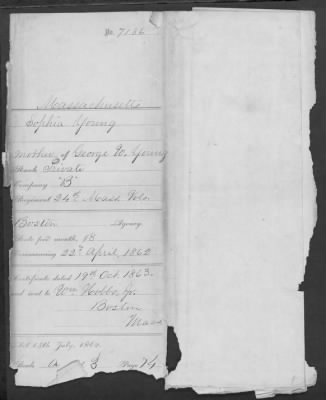 No. 7186
Massachusetts
Sophia Young
mother of George W. Young
Rank Private
Company "B"
Regiment 24th Mass. Vols.
Boston Agency
Rate per month, $8
Commencing 22d April, 1862
Certificate dated 19th Oct. 1863.
and sent to Wm Hobbs, Jr.
Boston
Mass
Act 14th July, 1862.
Book A 3 Page 74